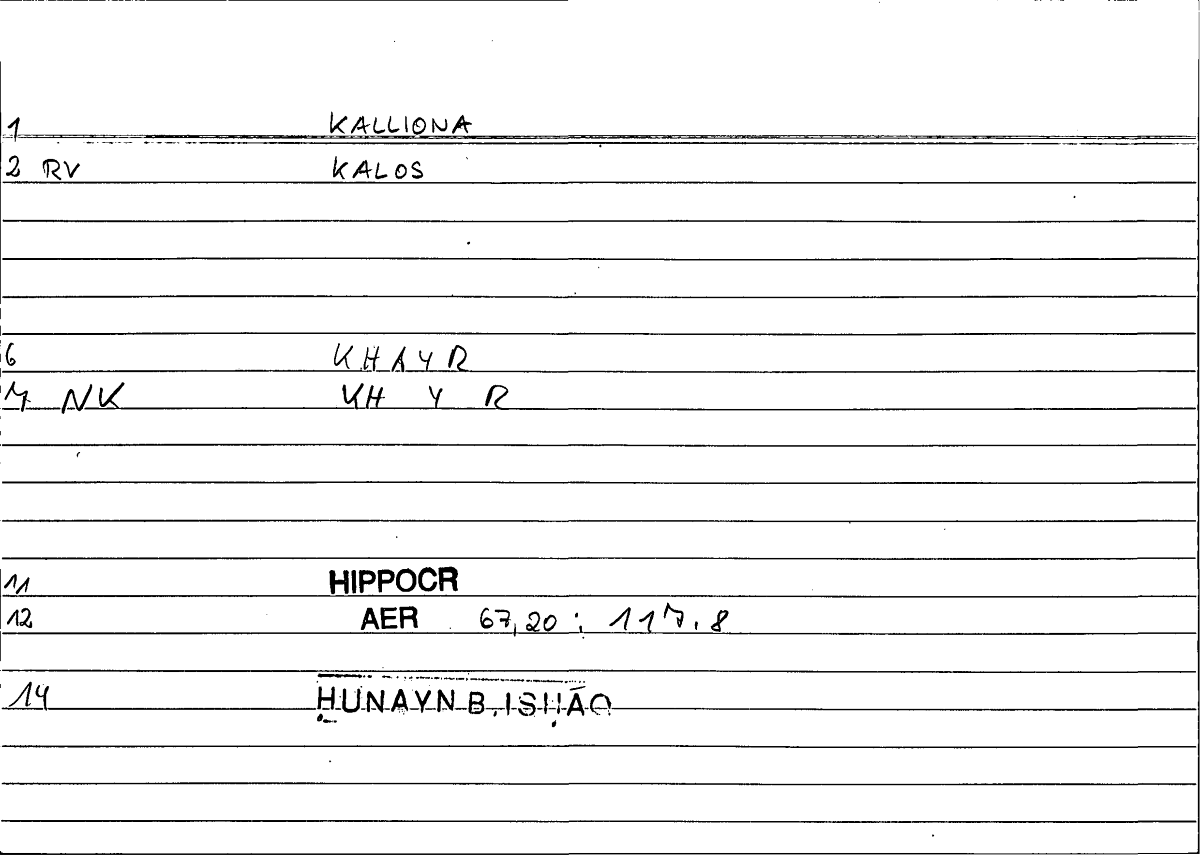 1 KALLIONA
2 RV KALOS
6 KHAYR
7 NK KH Y R
11 HIPPOCR
12 AER 67,20 ; 117,8
14 ḤUNAYN B. ISḤĀQ